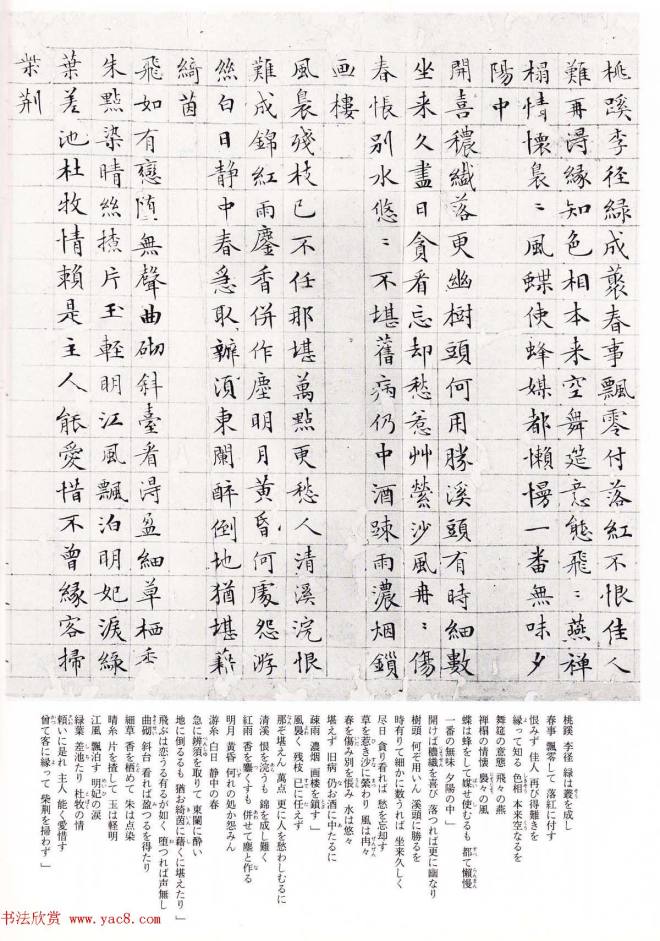 桃蹊李徑緑成叢春事飄零付落紅不恨佳人
難再得縁知色相本来空舞筵意態飛〻燕禅
榻情懷裊〻風蝶使蜂媒都懶慢一番無味夕
陽中
開喜穠纖落更幽樹頭何用勝溪頭有時細數
坐来久盡日貪看忘却愁惹艸縈沙風冉〻傷
春悵別水悠〻不堪舊病仍中酒踈雨濃烟鎖
画樓
風裊殘枝已不任那堪萬點更愁人清溪浣恨
難成錦紅雨麈香併作塵明月黄昏何處怨游
絲白日静中春急取辧須東闌醉倒地猶堪藉
綺茵
飛如有戀堕無聲曲砌斜臺看得盈細草栖香
朱點染晴絲揸片玉輕明江風飄泊明妃淚緑
葉差池杜牧情賴是主人能愛惜不曾縁客掃
柴荆
桃蹊 李径 緑は叢を成し
春事 飄零して 落紅に付す
恨みず 佳人 再び得難きを
縁って知る 色相 本来空なるを
舞筵の意態 飛々の燕
禅榻の情懐 裊々の風
蝶は蜂をして媒せ使むるも 都て懶慢
一番の無味 夕陽の中」
開けば穠纖を喜び 落つれば更に幽なり
樹頭 何ぞ用いん 溪頭に勝るを
時有りて細かに数うれば 坐来久しく
尽日 貪り看れば 愁を忘却す
草を惹き沙に縈わり 風は冉々
春を傷み別を悵み 水は悠々
堪えず 旧病 仍お酒に中たるに
疎雨 濃烟 画楼を鎖す」
風裊く 残枝 已に任えず
那ぞ堪えん 萬点 更に人を愁わしむるに
清溪 恨を浣うも 錦を成し難く
紅雨 香を麈くすも 併せて塵と作る
明月 黄昏 何れの処か怨みん
游糸 白日 静中の春
急に辨須を取りて 東闌に酔い
地に倒るるも 猶お綺茵に藉くに堪えたり」
飛ぶは恋うる有るが如く 堕つれば声無し
曲砌 斜台 看れば盈つるを得たり
細草 香を栖めて 朱は点染
晴糸 片を揸して 玉は軽明
江風 飄泊す 明妃の涙
緑葉 差池たり 杜牧の情
頼いに是れ 主人 能く愛惜す
曾て客に縁って 柴荊を掃わず」
书法欣赏 www.yac8.com